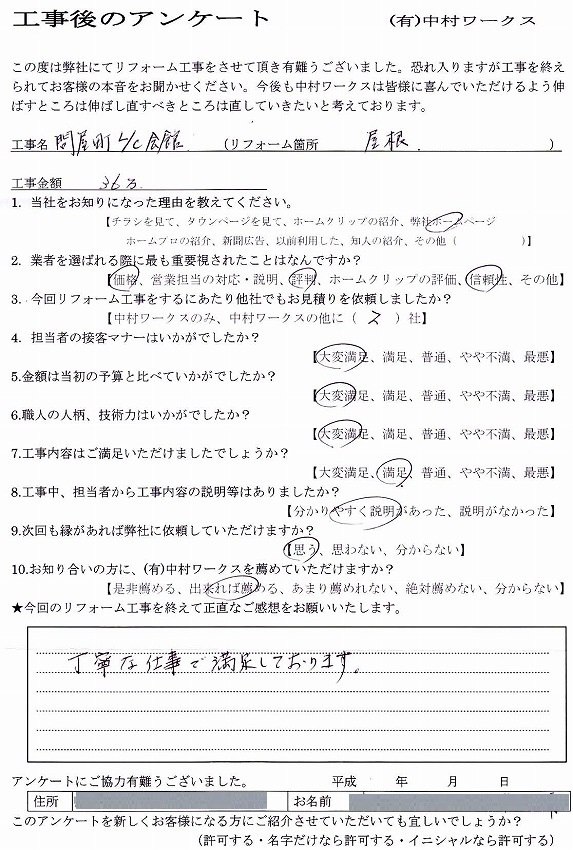 工事後のアンケート　(有)中村ワークス
この度は弊社にてリフォーム工事をさせて頂き有難うございました。恐れ入りますが工事を終え
られてお客様の本音をお聞かせください。今後も中村ワークスは皆様に喜んでいただけるよう伸
ばすところは伸ばし直すべきところは直していきたいと考えております。
工事名 問屋町L/C会館 （リフォーム箇所 屋根. ）
工事金額 36万
1. 当社をお知りになった理由を教えてください。
【チラシを見て、タウンページを見て、ホームクリップの紹介、弊社ホームページ
ホームプロの紹介、新聞広告、以前利用した、知人の紹介、その他（　　　　）】
2. 業者を選ばれる際に最も重要視されたことはなんですか？
【価格、営業担当の対応・説明、評判、ホームクリップの評価、信頼性、その他】
3. 今回リフォーム工事をするにあたり他社でもお見積りを依頼しましたか？
【中村ワークスのみ、中村ワークスの他に（ 2 ）社】
4. 担当者の接客マナーはいかがでしたか？
【大変満足、満足、普通、やや不満、最悪】
5.金額は当初の予算と比べていかがでしたか？
【大変満足、満足、普通、やや不満、最悪】
6.職人の人柄、技術力はいかがでしたか？
【大変満足、満足、普通、やや不満、最悪】
7.工事内容はご満足いただけましたでしょうか？
【大変満足、満足、普通、やや不満、最悪】
8.工事中、担当者から工事内容の説明等はありましたか？
【分かりやすく説明があった、説明がなかった】
9.次回も縁があれば弊社に依頼していただけますか？
【思う、思わない、分からない】
10.お知り合いの方に、(有)中村ワークスを薦めていただけますか？
【是非薦める、出来れば薦める、あまり薦めれない、絶対薦めない、分からない】
★今回のリフォーム工事を終えて正直なご感想をお願いいたします。
丁寧な仕事で満足しております。
アンケートにご協力有難うございました。　平成　年　月　日
住所　お名前
このアンケートを新しくお客様になる方にご紹介させていただいても宜しいでしょうか？
（許可する・名字だけなら許可する・イニシャルなら許可する）